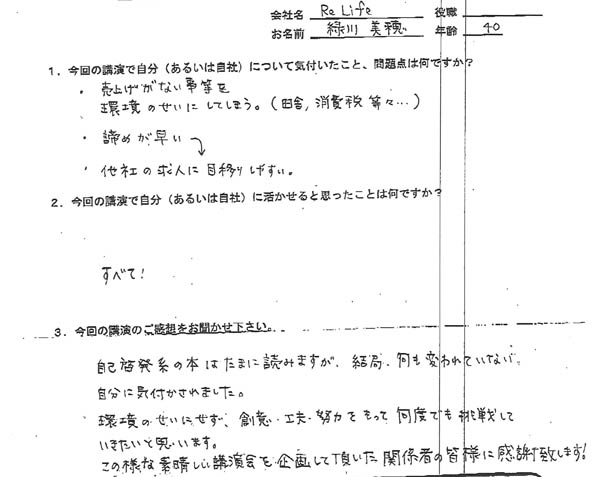 会社名 Re Life 役職
お名前 緑川 美穂 年齢 40
1．今回の講演で自分（あるいは自社）について気付いたこと、問題点は何ですか？
・売上げがない事等を
環境のせいにしてしまう。（田舎, 消費税 等々…）
・諦めが早い
・他社の求人に目移りしやすい。
2．今回の講演で自分（あるいは自社）に活かせると思ったことは何ですか？
すべて！
3．今回の講演のご感想をお聞かせ下さい。
自己啓発系の本はたまに読みますが、結局、何も変われていない
自分に気付かされました。
環境のせいにせず、創意・工夫・努力をもって何度でも挑戦して
いきたいと思います。
この様な素晴しい講演会を企画して頂いた関係者の皆様に感謝致します！